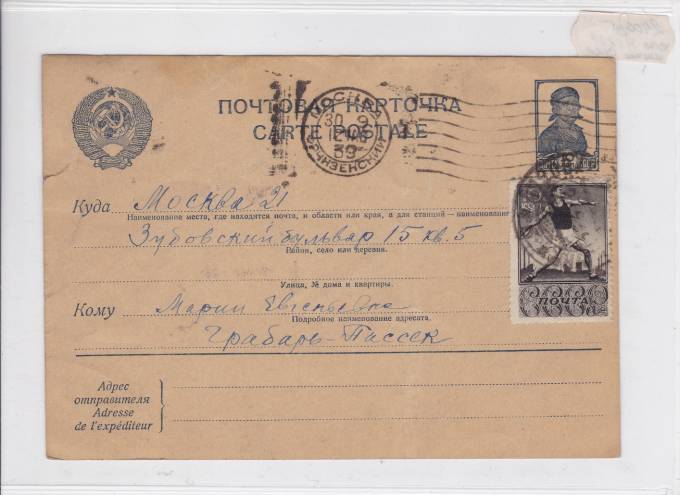 ПОЧТОВАЯ КАРТОЧКА
CARTE POSTALE
МОСКВА
30 9
39
Куда Москва 21
Наименование места, где находится почта, и области или края, а для станций – наименование
Зубовский бульвар 15 кв. 5
Район, село или деревня.
Улица, № дома и квартиры.
Кому Марии Евгеньевне
Подробное наименование адресата.
Грабарь-Пассек
ПОЧТА
Адрес
отправителя
Adresse
de l'expéditeur